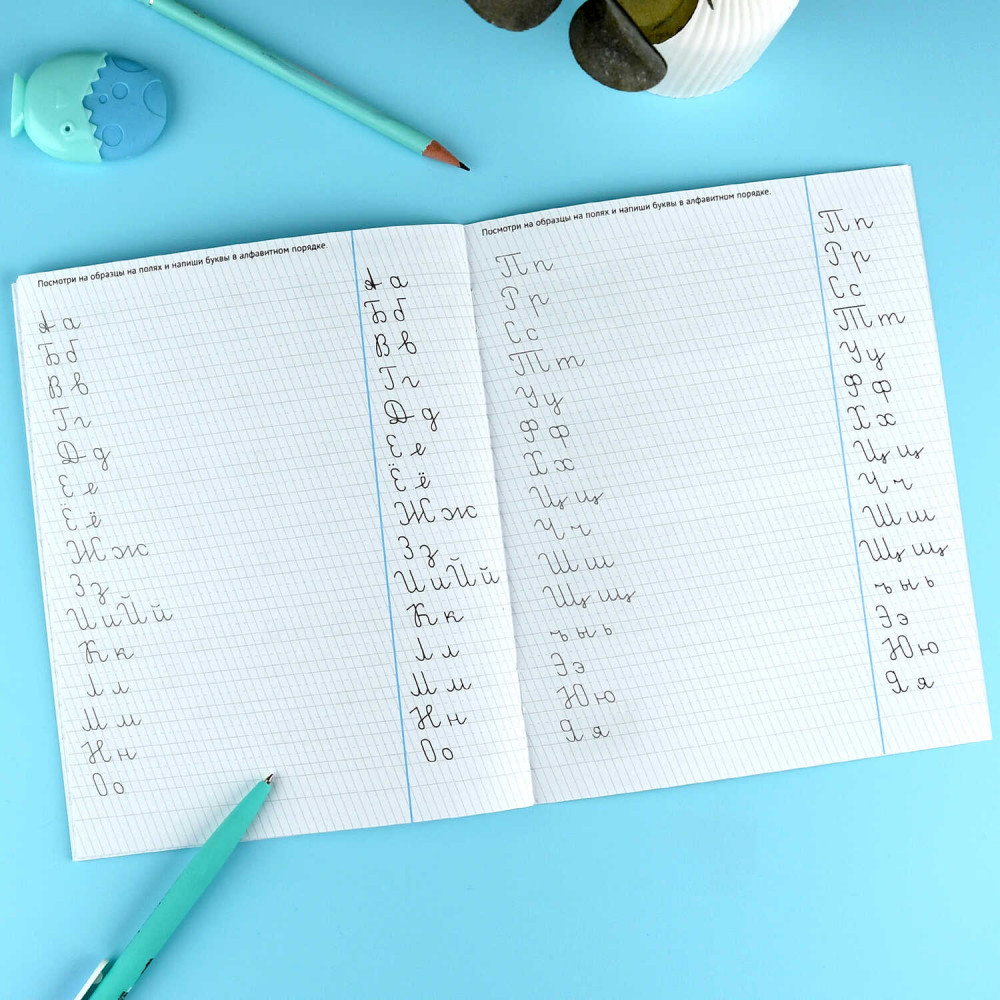 Посмотри на образцы на полях и напиши буквы в алфавитном порядке.
А а
Б б
В в
Г г
Д д
Е е
Ё ё
Ж ж
З з
И и Й й
К к
Л л
М м
Н н
О о
А а
Б б
В в
Г г
Д д
Е е
Ё ё
Ж ж
З з
И и Й й
К к
Л л
М м
Н н
О о
Посмотри на образцы на полях и напиши буквы в алфавитном порядке.
П п
Р р
С с
Т т
У у
Ф ф
Х х
Ц ц
Ч ч
Ш ш
Щ щ
ъ ы ь
Э э
Ю ю
Я я
П п
Р р
С с
Т т
У у
Ф ф
Х х
Ц ц
Ч ч
Ш ш
Щ щ
ъ ы ь
Э э
Ю ю
Я я